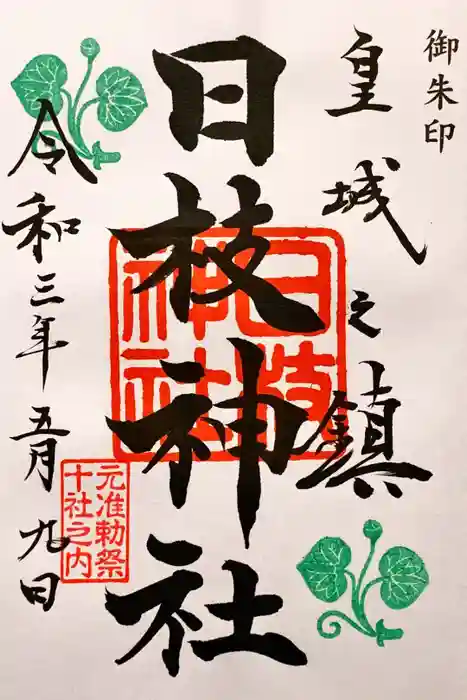 御朱印
皇城之鎮
日枝神社
日枝神社
元准勅祭
十社之内
令和三年五月九日